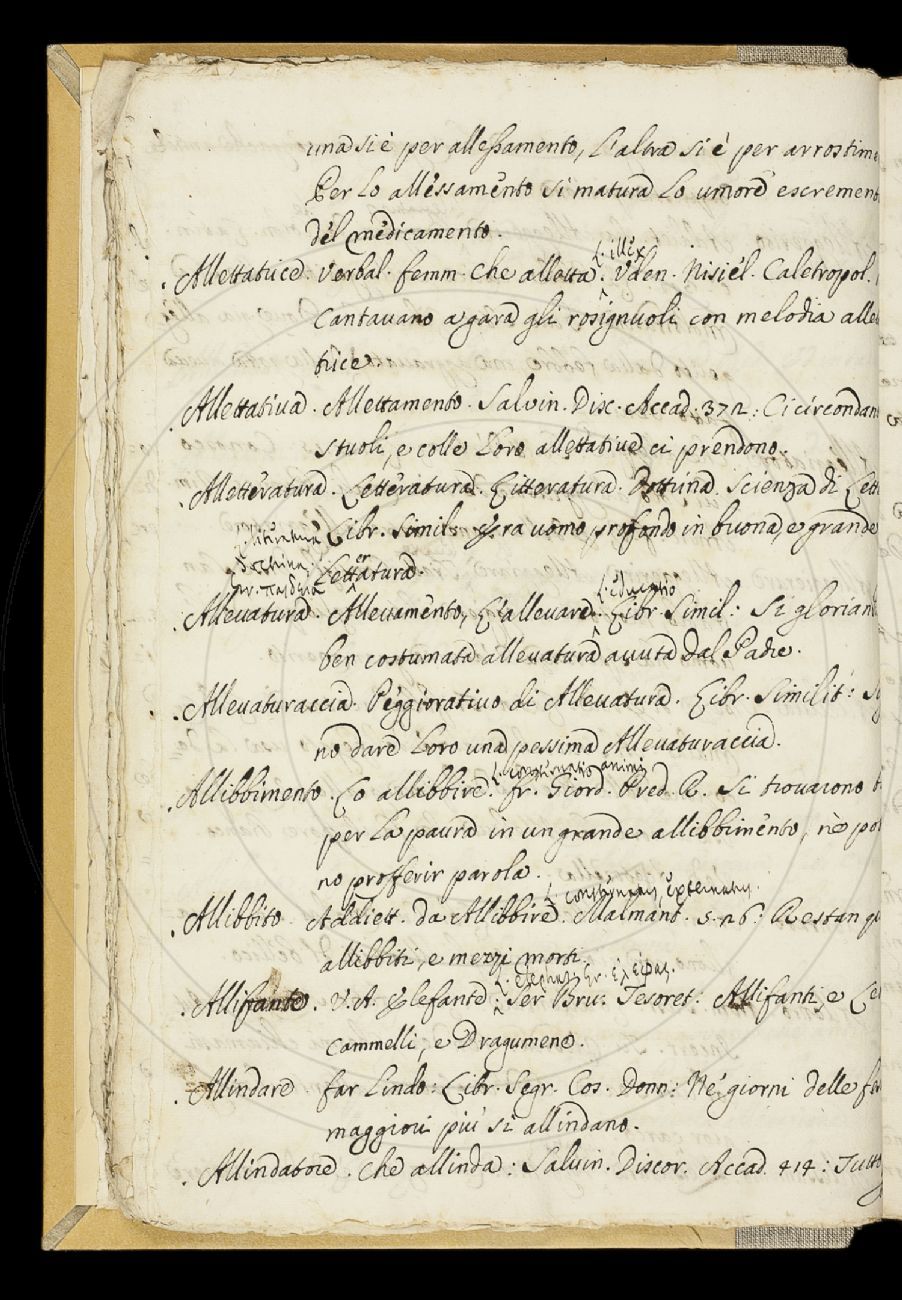 una si è per allessamento, L'altra si è per arrostime
Per Lo allessamento si matura Lo umore escremento
del medicamento.
L. illex
. Allettatrice. Verbal. femm. Che alletta. Vden. Nisiel. Caletropol.
Cantavano a gara gli rosignuoli con melodia alle
trice
. Allettativa. Allettamento. Salvin. Disc. Accad. 372: Ci circondan
stuoli, e colle Loro allettative ci prendono.
. Alletteratura. Letteratura. Litteratura. Dottrina. Scienza di Lett
Libr. Simil. Era uomo profondo in buona, e grande
L. litteratura
doctrina.
Lettoratura.
Gr. παιδεία
L. educatio
. Allevatura. Allevamento, L'allevare. Libr. Simil: Si glorian
ben costumata allevatura avuta dal Padre.
. Allevaturaccia. Peggiorativo di Allevatura. Libr. Similit: S
no dare Loro una pessima Allevaturaccia.
L. consternatio animi
. Allibbimento. Lo allibbire. Fr. Giord. Pred. R. Si trovarono t
per La paura in un grande allibbimento, nè po
no profferir parola.
L. consternatus, externatus.
. Allibbito. Addiett. da Allibbire. Malmant. 5. 26: Restan q
allibbiti, e mezzi morti.
L. elephas, Gr. ἐλέφας.
. Allifante. V. A. Elefante. Ser Bru. Tesoret: Allifanti, e Le
Cammelli, e Dragumene.
. Allindare far Lindo: Libr. Segr. Cos. Donn: Ne' giorni delle fe
maggiori più si allindano.
. Allindatore. Che allinda: Salvin. Discor. Accad. 414: Tutto